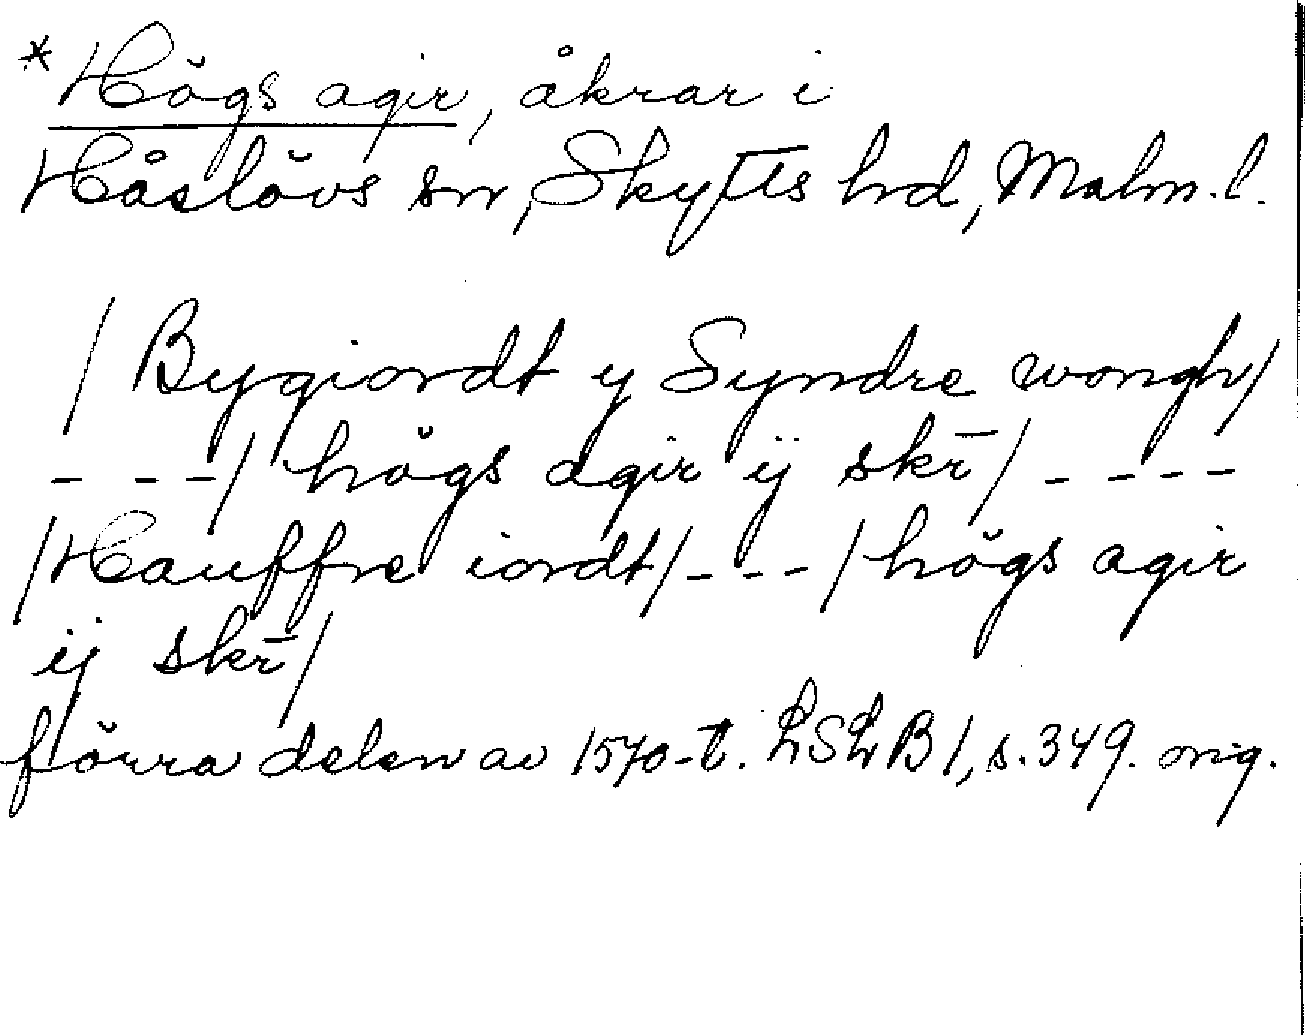 *Högs agir, åkrar i
Håslövs sn, Skytts hd, Malm. l.
/ Bygiordt y Syndre wongh /
- - - / högs agir ij skr̄ / - - - -
/ Hauffre iordt / - - - / högs agir
ij skr̄ /
förra delen av 1570-t. LSLB 1, s. 349. orig.